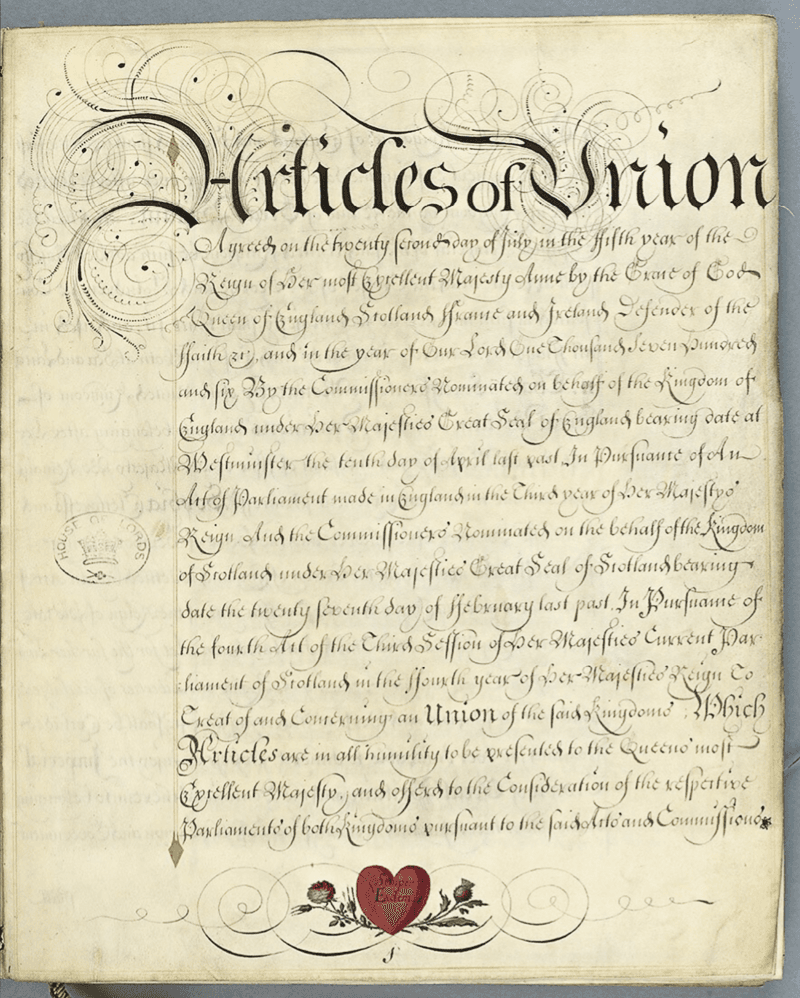 Articles of Union
Agreed on the twenty second day of July, in the ffifth year of the
Reign of Her most Excellent Majesty Anne by the Grace of God
Queen of England Scotland ffrance and Ireland Defender of the
ffaith &c, and in the year of Our Lord One Thousand Seven Hundred
and six, By the Commissioners Nominated on behalf of the Kingdom of
England under Her Majesties Great Seal of England bearing date at
Westminster the tenth day of April last past In Pursuance of An
Act of Parliament made in England in the Third year of Her Majestys
Reign, And the Commissioners Nominated on the behalf of the Kingdom
of Scotland under Her Majesties Great Seal of Scotland bearing
date the twenty seventh day, of ffebruary last past, In Pursuance of
the fourth Act of the Third Session of Her Majesties Current Par-
:liament of Scotland in the ffourth year of Her Majesties Reign To
Treat of and Concerning an Union of the said Kingdoms Which
Articles are in all humility to be presented to the Queens most
Excellent Majesty, and offerd to the Consideration of the respective
Parliaments of both Kingdoms pursuant to the said Acts and Commissions
HOUSE OF LORDS
Semper
Eadem
1